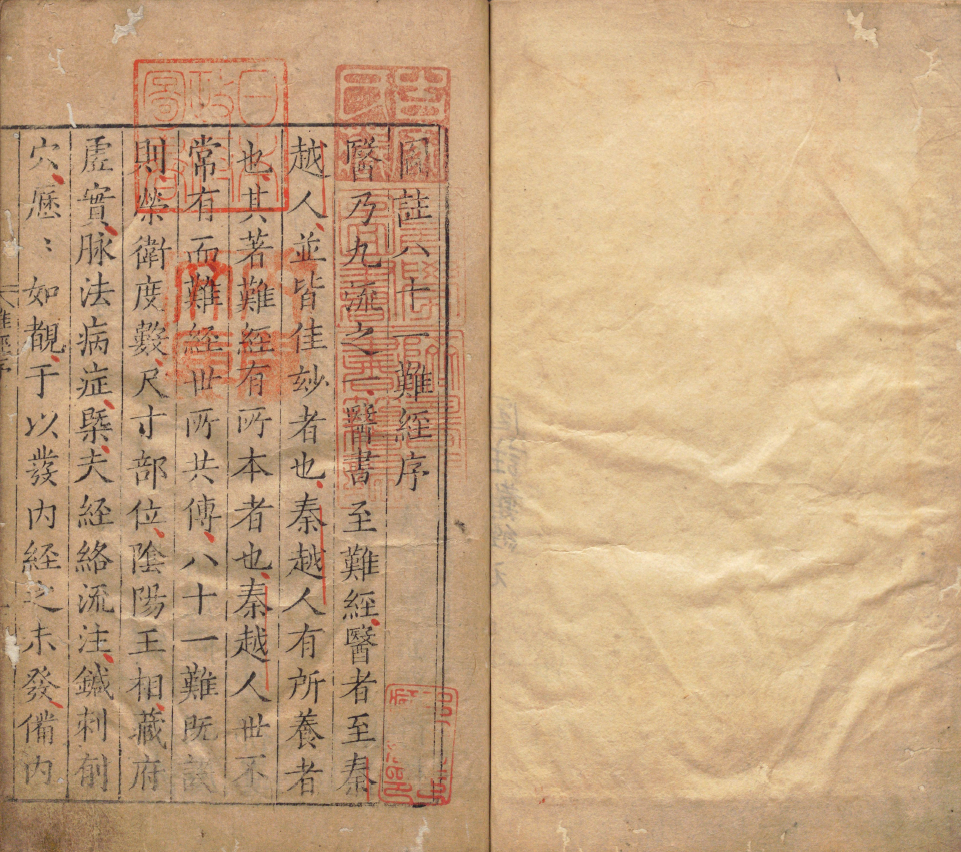 圖註八十一難經序
醫乃九流之一、醫書至難經、醫者至秦
越人、並皆佳妙者也、秦越人有所養者
也、其著難經有所本者也、秦越人世不
常有而難經世所共傳、八十一難既設
則、榮衛度數、尺寸部位、陰陽王相、藏府
虛實、脉法病症、槩夫經絡流注、鍼刺俞
穴、歷〻如覩、于以發内經之未發、備内
難經序
日本政府圖書